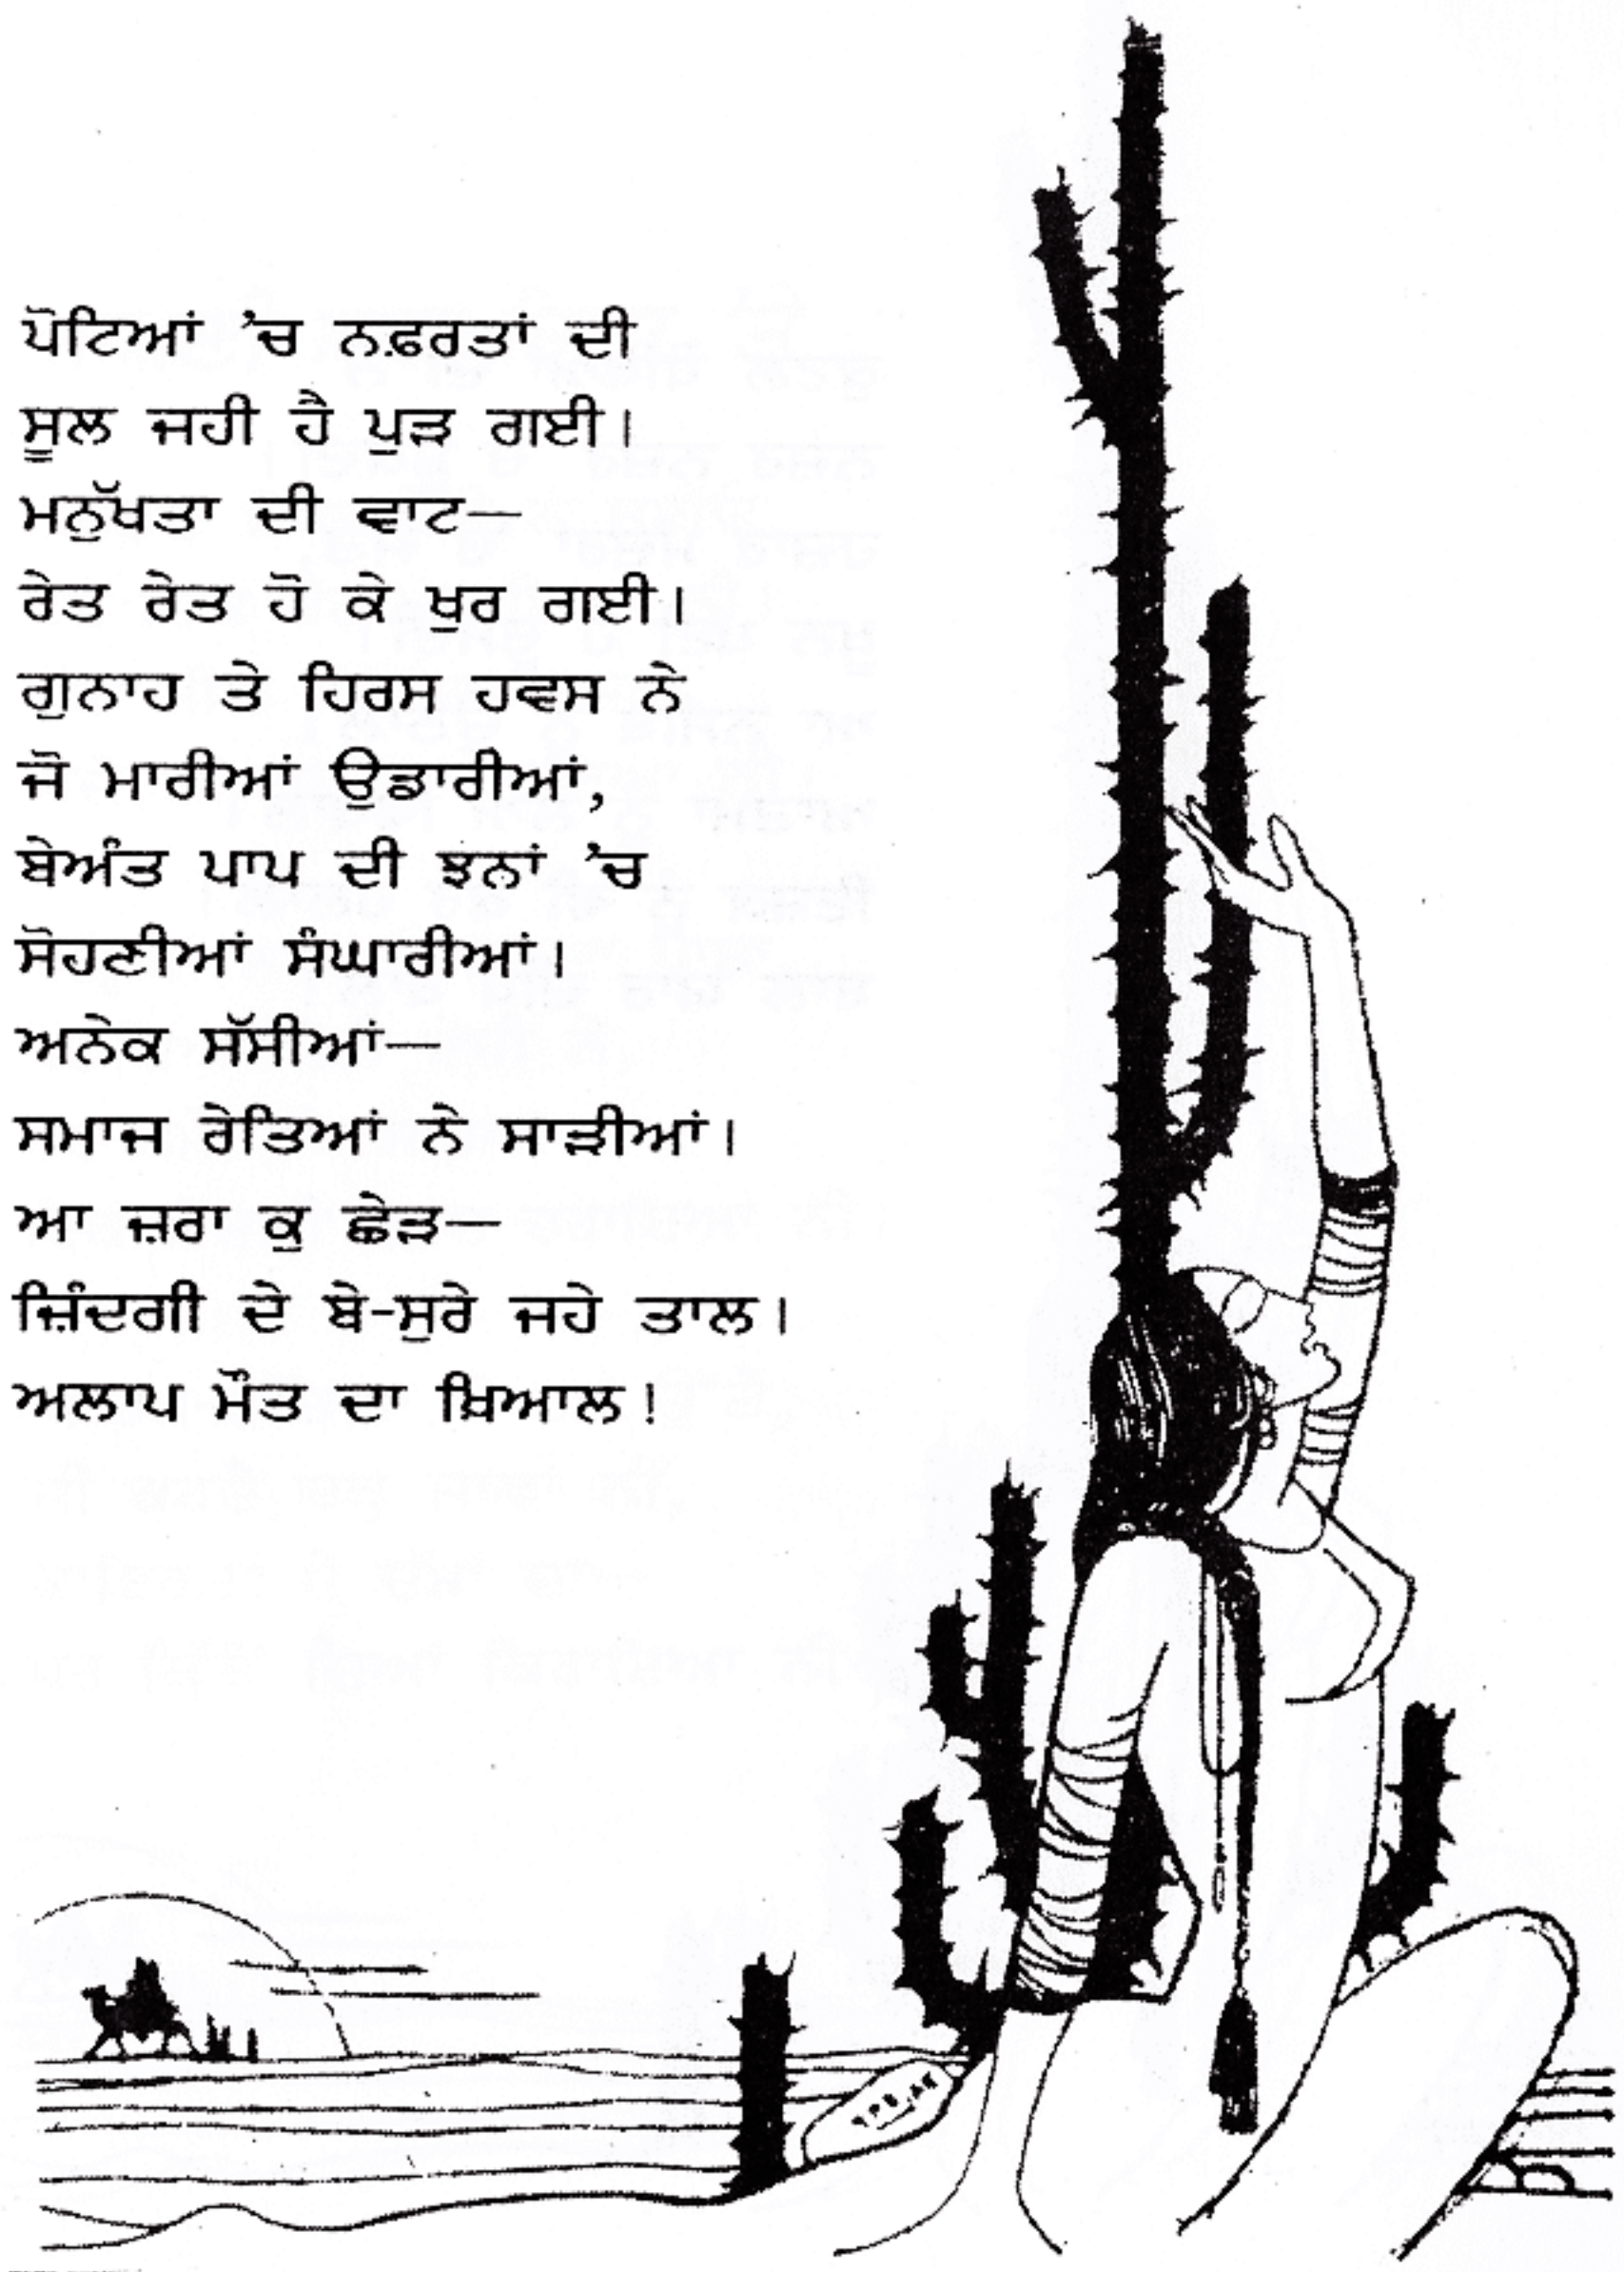 ਪੋਟਿਆਂ ’ਚ ਨਫ਼ਰਤਾਂ ਦੀ
ਸੂਲ ਜਹੀ ਹੈ ਪੁੜ ਗਈ।
ਮਨੁੱਖਤਾ ਦੀ ਵਾਟ—
ਰੇਤ ਰੇਤ ਹੋ ਕੇ ਖੁਰ ਗਈ।
ਗੁਨਾਹ ਤੇ ਹਿਰਸ ਹਵਸ ਨੇ
ਜੋ ਮਾਰੀਆਂ ਉਡਾਰੀਆਂ,
ਬੇਅੰਤ ਪਾਪ ਦੀ ਝਨਾਂ ’ਚ
ਸੋਹਣੀਆਂ ਸੰਘਾਰੀਆਂ।
ਅਨੇਕ ਸੱਸੀਆਂ—
ਸਮਾਜ ਰੇਤਿਆਂ ਨੇ ਸਾੜੀਆਂ।
ਆ ਜ਼ਰਾ ਕੁ ਛੇੜ—
ਜ਼ਿੰਦਗੀ ਦੇ ਬੇ-ਸੁਰੇ ਜਹੇ ਤਾਲ।
ਅਲਾਪ ਮੌਤ ਦਾ ਖ਼ਿਆਲ!